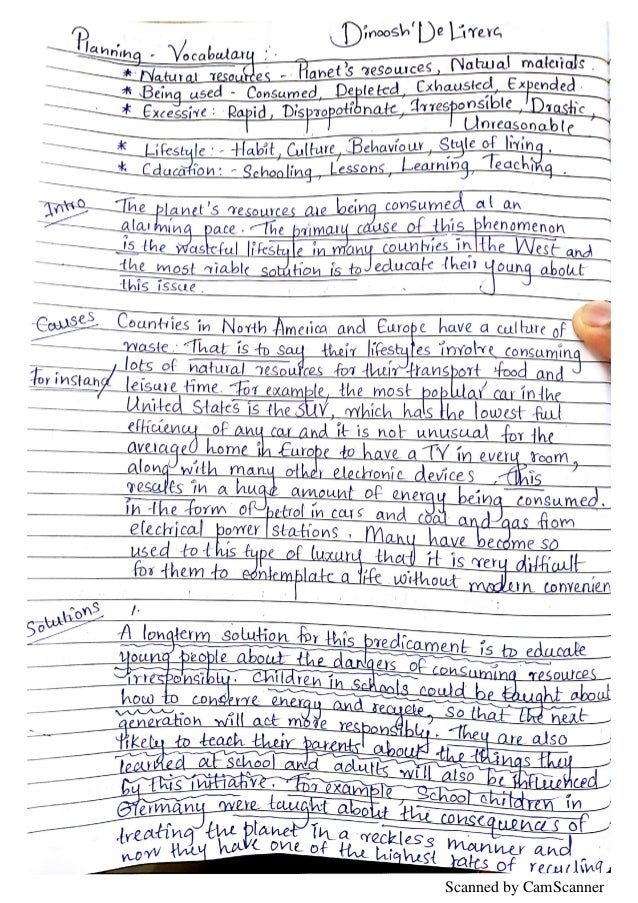 Dinoosh De Livera
Planning - Vocabulary :-
* Natural resources - Planet's resources, Natural materials.
* Being used - Consumed, Depleted, Exhausted, Expended.
* Excessive : Rapid, Dispropotionate, Irresponsible, Drastic,
Unreasonable
* Lifestyle :- Habit, Culture, Behaviour, Style of living.
* Education: - Schooling, Lessons, Learning, Teaching.
Intro
The planet's resources are being consumed at an
alarming pace. The primary cause of this phenomenon
is the wasteful lifestyle in many countries in the West and
the most viable solution is to educate their young about
this issue.
Causes
Countries in North America and Europe have a culture of
waste. That is to say their lifestyles involve consuming
lots of natural resources for their transport food and
For instand
leisure time. For example, the most popular car in the
United States is the SUV, which has the lowest fuil
efficiency of any car and it is not unusual for the
averaged home in Europe to have a TV in every room,
along with many other electronic devices. This
results in a huge amount of energy being consumed.
in the form of petrol in cars and coal and gas from
electrical power stations. Many have become so
used to this type of luxury that it is very difficult
for them to contemplate a life without modern convenien
Solutions
A longterm solution for this predicament is to educate
young people about the dangers of consuming resources
irresponsibly. Children in schools could be taught about
how to conserve energy and recycle, so that the next
generation will act more responsibly. They are also
likely to teach their parents about the things they
learned at school and adults will also be influenced
by this initiative. For example, School children in
Germany were taught about the consequences of
treating the planet in a reckless manner and
now they have one of the highest rates of recycling.
Scanned by CamScanner